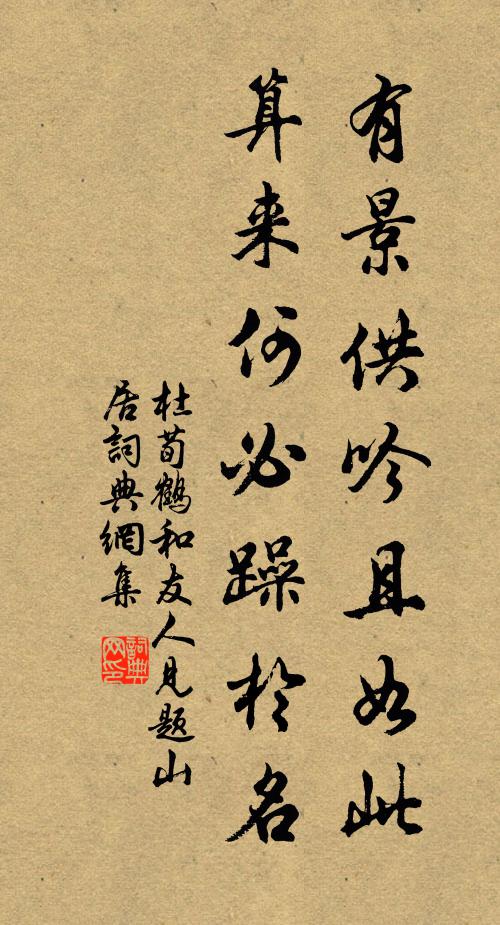 有景供吟且如此
算来何必躁於名
杜荀鶴和友人見題山
居詞典網集
詞典
网印